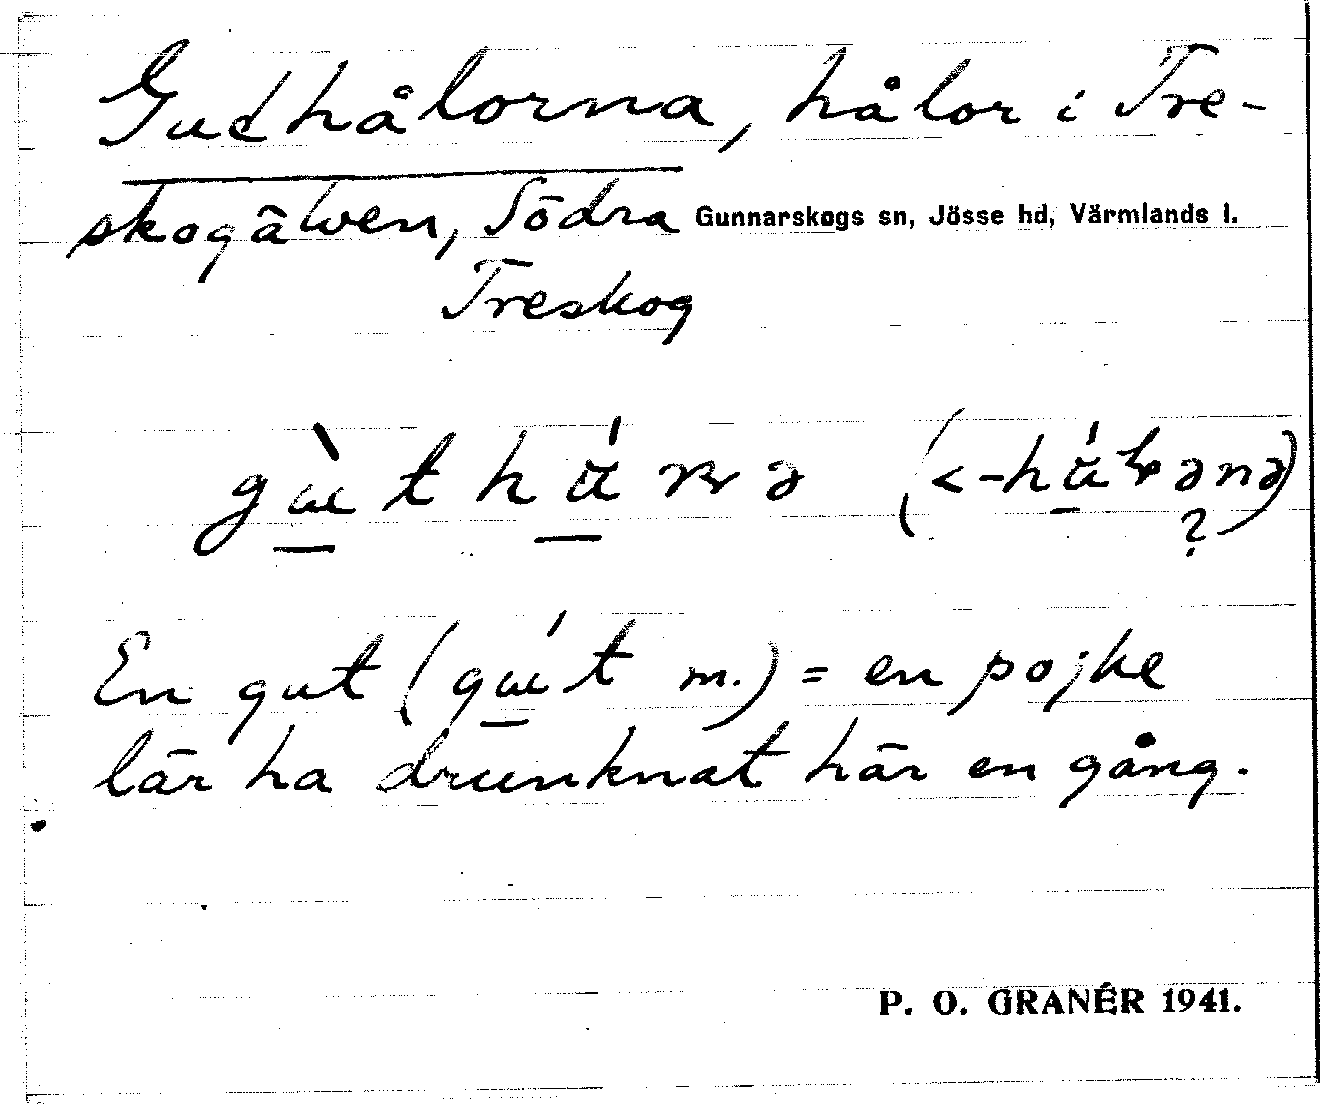 Gudhålorna, hålor i Tre-
skogälven, Södra Gunnarskogs sn, Jösse hd, Värmlands l.
Treskog
En gut ( m.) = en pojke
lär ha drunknat här en gång.
P. O. GRANÉR 1941.